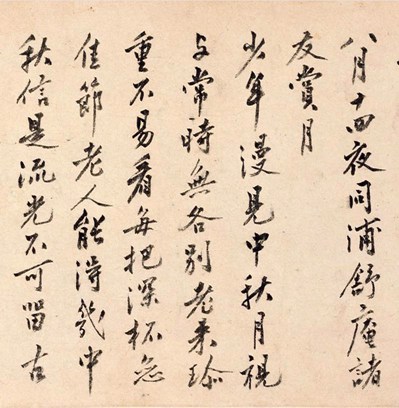 八月十四夜同浦舒庵諸
友賞月
少年漫見中秋月視
与常時無各別老来珎
重不易看每把深杯
佳節老人能得幾中
秋信是流光不可留古